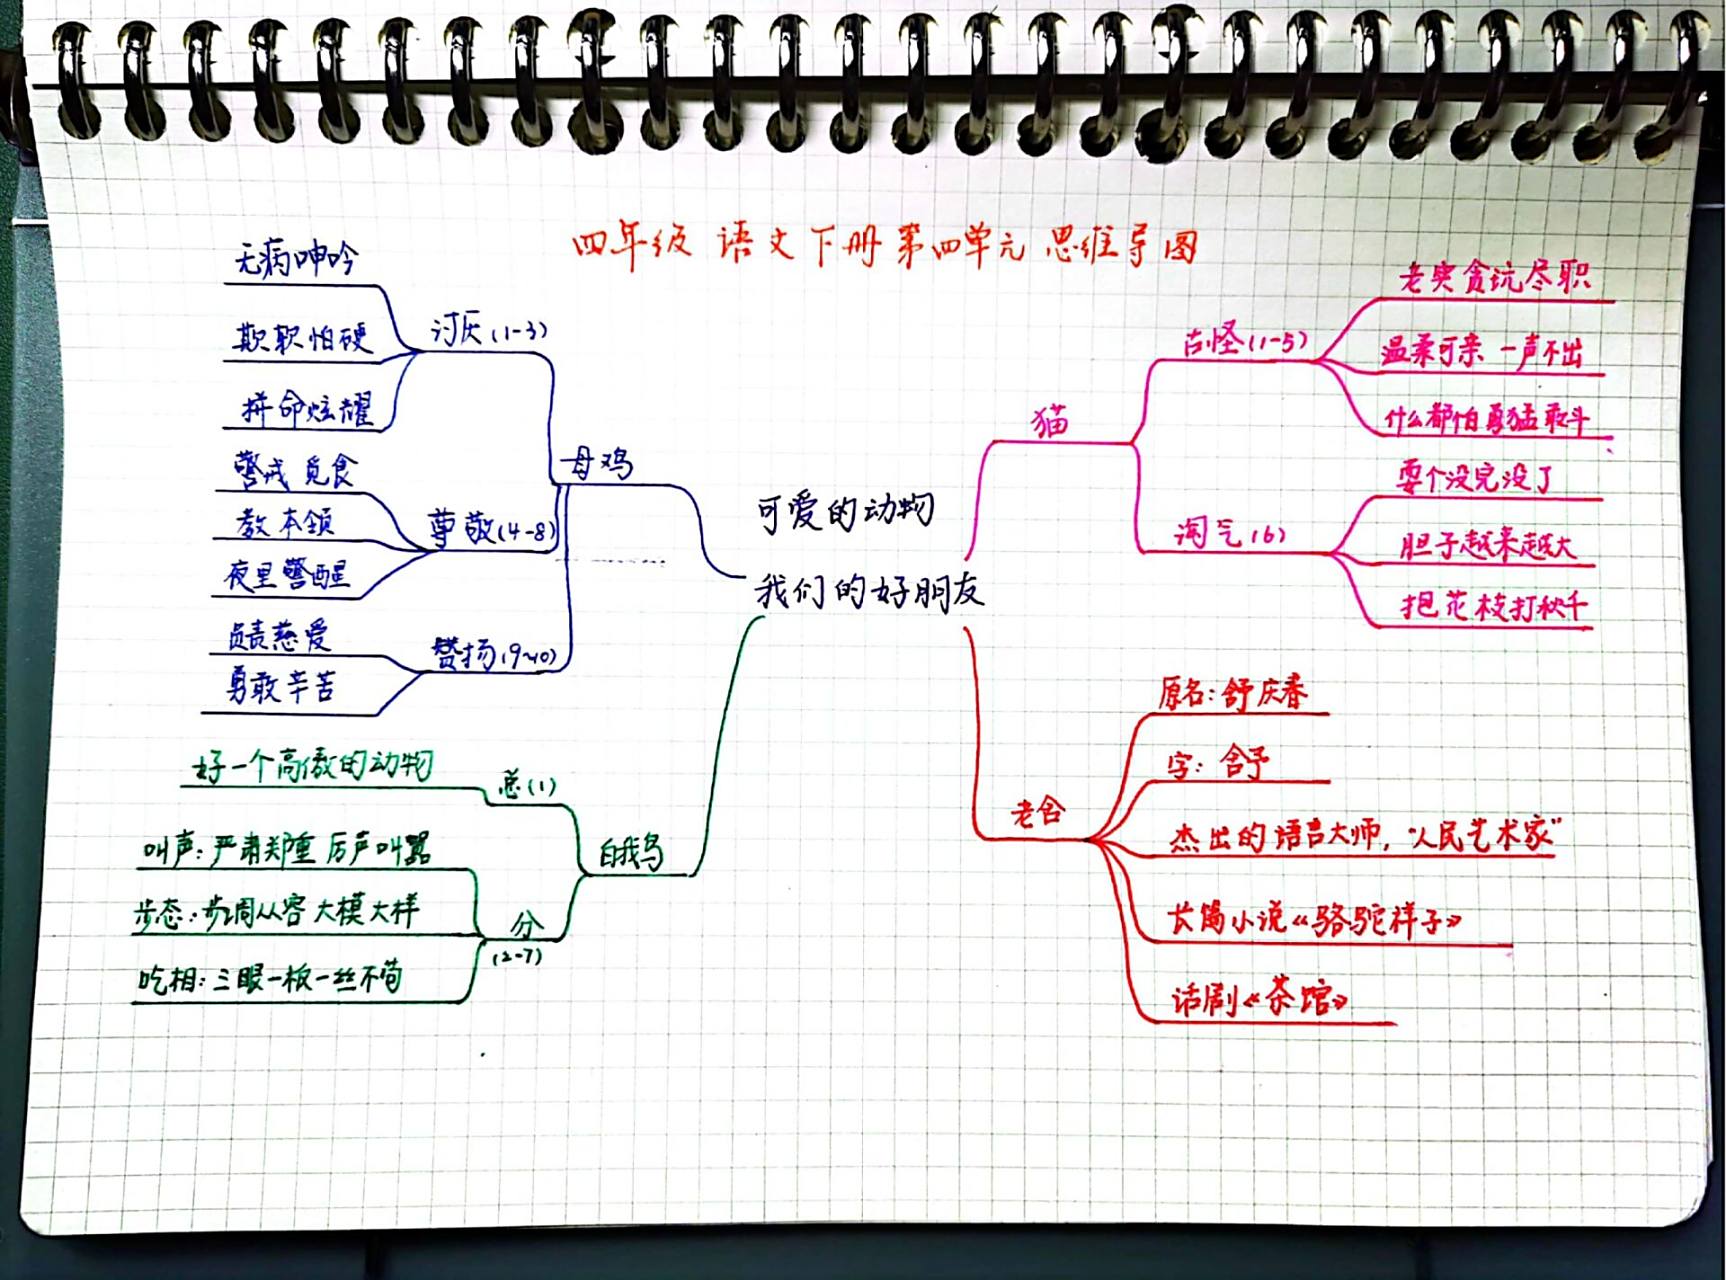 四年级 语文下册第四单元 思维导图
可爱的动物
我们的好朋友
猫
古怪(1-5)
老实贪玩尽职
温柔可亲 一声不出
什么都怕 勇猛敢斗
淘气(6)
耍个没完没了
胆子越来越大
抱花枝打秋千
老舍
原名:舒庆春
字:舍予
杰出的语言大师,“人民艺术家”
长篇小说《骆驼祥子》
话剧《茶馆》
母鸡
讨厌(1-3)
无病呻吟
欺软怕硬
拼命炫耀
尊敬(4-8)
警戒 觅食
教本领
夜里警醒
赞扬(9-10)
负责慈爱
勇敢辛苦
白鹅
总(1)
好一个高傲的动物
分
(2-7)
叫声:严肃郑重 厉声叫嚣
步态:步调从容 大模大样
吃相:三眼一板一丝不苟